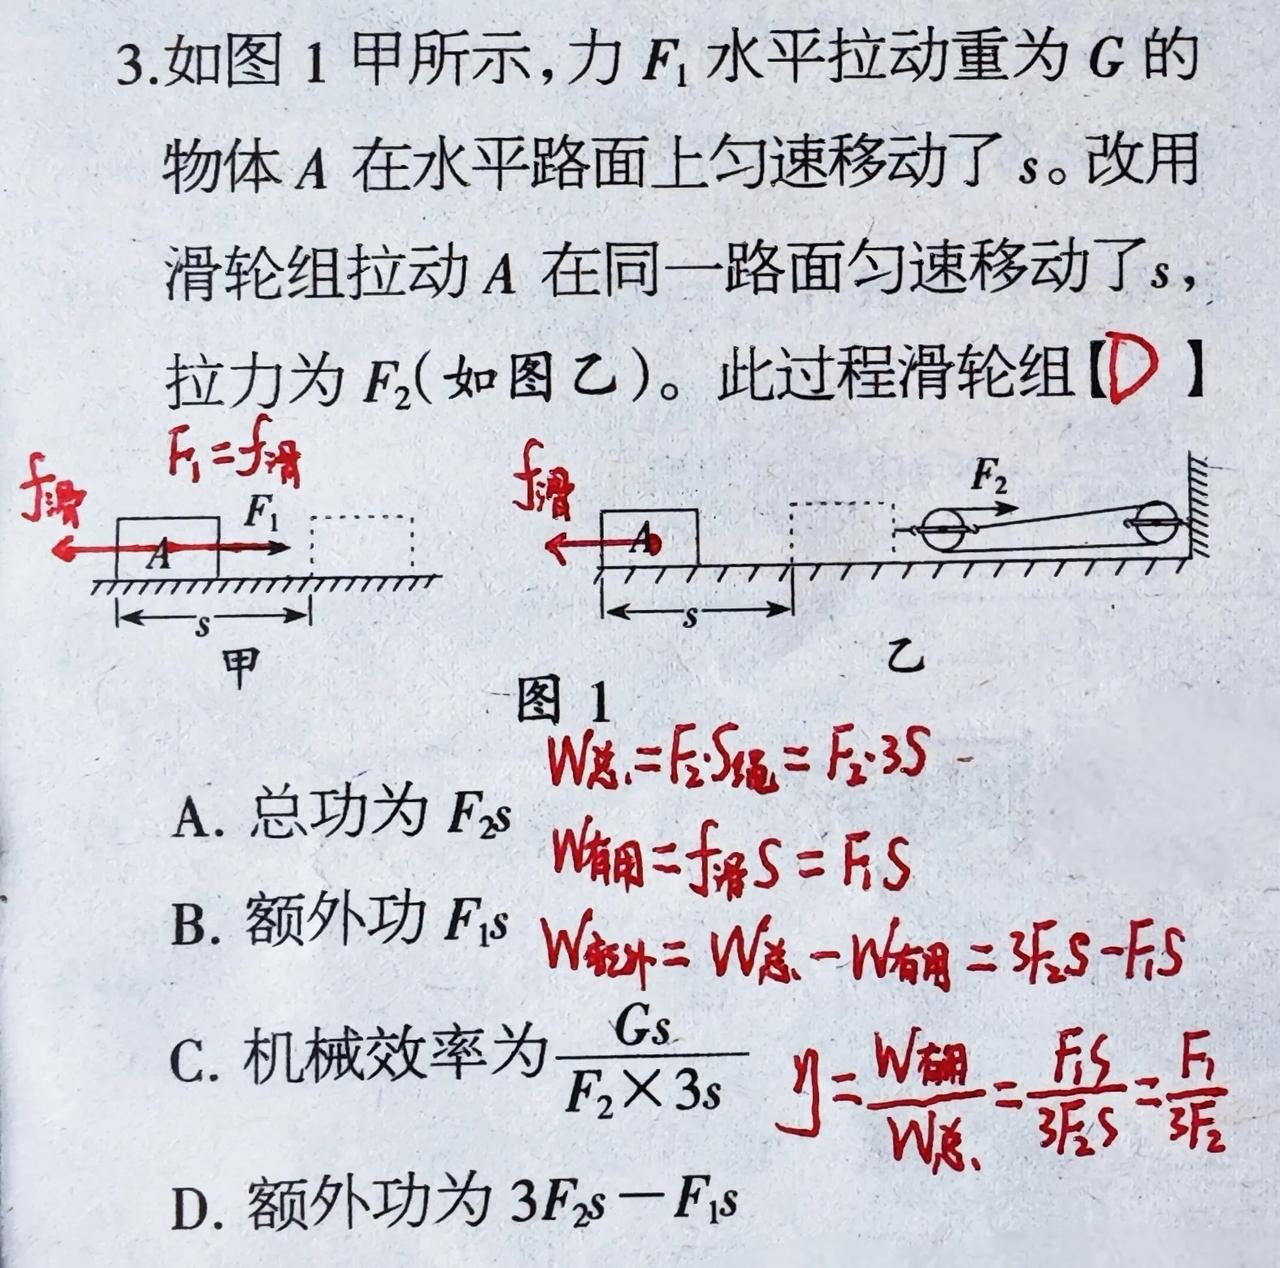 3.如图 1 甲所示,力 F₁ 水平拉动重为 G 的
物体 A 在水平路面上匀速移动了 s。改用
滑轮组拉动 A 在同一路面匀速移动了 s,
拉力为 F₂(如图乙)。此过程滑轮组【D】
F₁=f滑
f滑
F₁
A
s
甲
f滑
F₂
A
s
乙
图 1
W总=F₂·S绳=F₂·3S
A. 总功为 F₂s
W有用=f滑S=F₁S
B. 额外功 F₁s
W额外=W总-W有用=3F₂S-F₁S
C. 机械效率为 Gs/(F₂×3s)
η=W有用/W总=F₁S/3F₂S=F₁/3F₂
D. 额外功为 3F₂s-F₁s